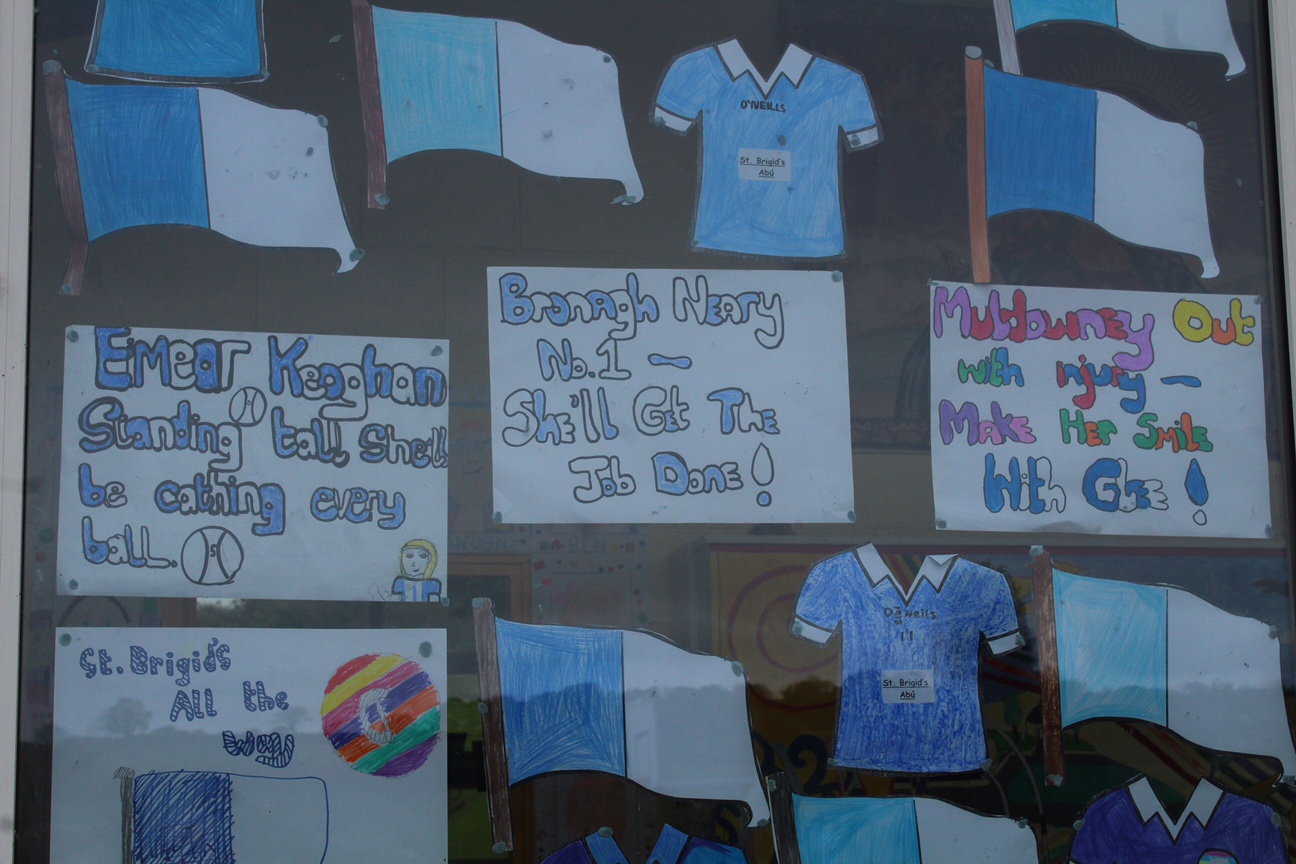 O'NEILLS
St. Brigid's
Abú
Eimear Keoghan
Standing tall she'll
be cathing every
ball.
Bronagh Neary
No.1 –
She'll Get The
Job Done!
Muldowney Out
with injury –
Make Her Smile
With Glee!
St. Brigid's
All the
way
O'Neills
11
St. Brigid's
Abú